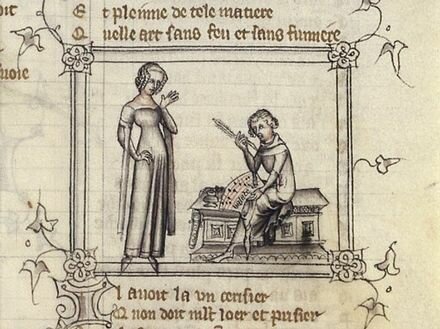 oit
E t pleinne de tele matiere
Q uelle art sans feu et sans fumiere
voie
l auoit la un cerisier
Q uon doit mlt loer et prisier